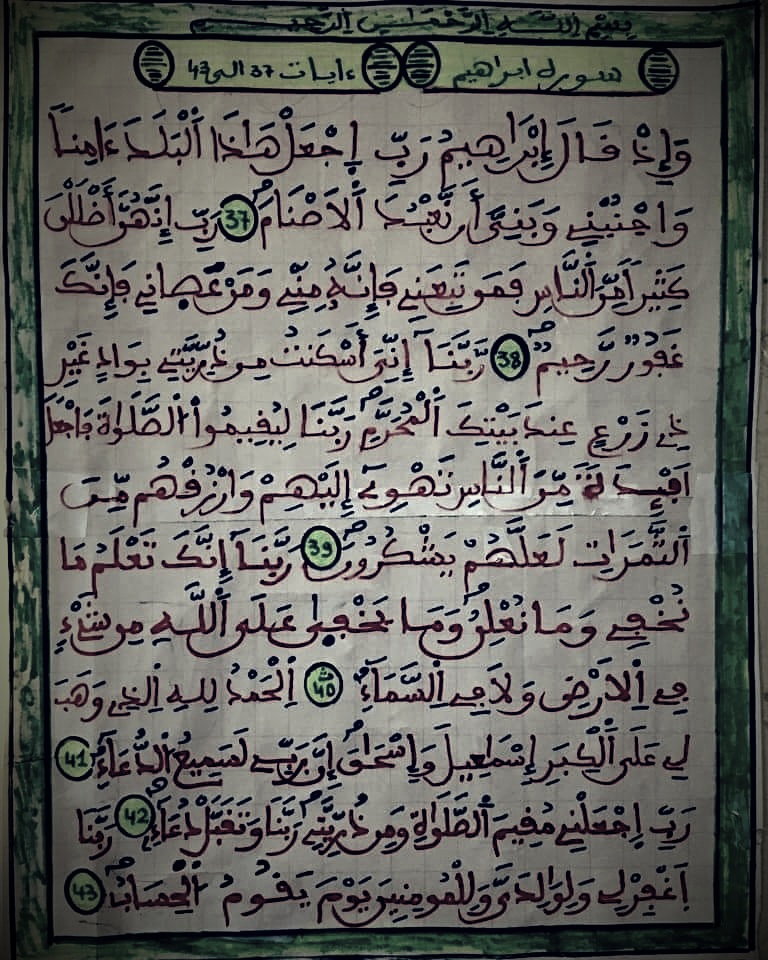 بِسْمِ اللَّهِ الرَّحْمَٰنِ الرَّحِيمِ
سورة ابراهيم ءايات 37 الى 43
وَإِذْ قَالَ إِبْرَاهِيمُ رَبِّ اِجْعَلْ هَٰذَا اَلْبَلَدَ ءَامِناً
وَاجْنُبْنِي وَبَنِيَّ أَن نَّعْبُدَ اَلْاَصْنَامَ 37 رَبِّ إِنَّهُنَّ أَضْلَلْنَ
كَثِيراً مِّنَ اَلنَّاسِ فَمَن تَبِعَنِي فَإِنَّهُ مِنِّي وَمَنْ عَصَانِي فَإِنَّكَ
غَفُورٌ رَّحِيمٌ 38 رَّبَّنَا إِنِّيَ أَسْكَنتُ مِن ذُرِّيَّتِي بِوَادٍ غَيْرِ
ذِي زَرْعٍ عِندَ بَيْتِكَ اَلْمُحَرَّمِ رَبَّنَا لِيُقِيمُواْ اُلصَّلَوٰةَ فَاجْعَلَ
اَفْـِٕدَةً مِّنَ اَلنَّاسِ تَهْوِي إِلَيْهِمْ وَارْزُقْهُم مِّنَ
اَلثَّمَرَاتِ لَعَلَّهُمْ يَشْكُرُونَ 39 رَبَّنَا إِنَّكَ تَعْلَمُ مَا
نُخْفِي وَمَا نُعْلِنُ وَمَا يَخْفَىٰ عَلَى اَللَّهِ مِن شَيْءٍ
فِي اِلْاَرْضِ وَلَا فِي اِلسَّمَاءِ 40 اِلْحَمْدُ لِلهِ اِلذِي وَهَبَ
لِي عَلَى اَلْكِبَرِ إِسْمَاعِيلَ وَإِسْحَاقَ إِنَّ رَبِّي لَسَمِيعُ اُلدُّعَاءِ 41
رَبِّ اِجْعَلْنِي مُقِيمَ اَلصَّلَوٰةِ وَمِن ذُرِّيَّتِي رَبَّنَا وَتَقَبَّلْ دُعَاءِ 42 رَبَّنَا
اَغْفِرْ لِي وَلِوَالِدَيَّ وَلِلْمُومِنِينَ يَوْمَ يَقُومُ اُلْحِسَابُ 43